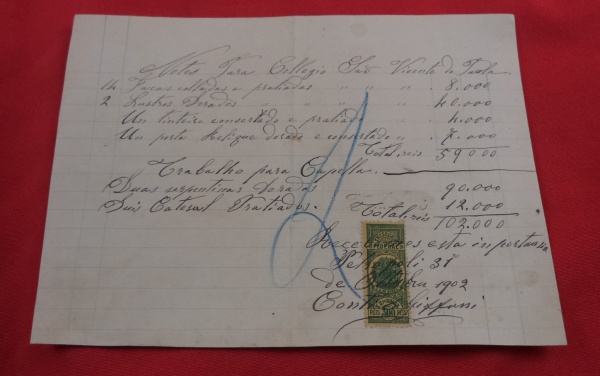 Notes Para Collegio São Vicente de Paola
14 Facas soltadas e pratiadas " " " 8.000
2 Lustres Dorados " " " 40.000
Um tinteiro consertado e pratiado " 4.000
Um porta Relique dorado e consertado " 7.000
Total reis 590.00
Trabalho para Capella.
Duas serpentinas Doradas 90.000
Duis Pratiados. 12.000
Total reis 102.000
Recebemos esta importansa
31
de Outubro 1902